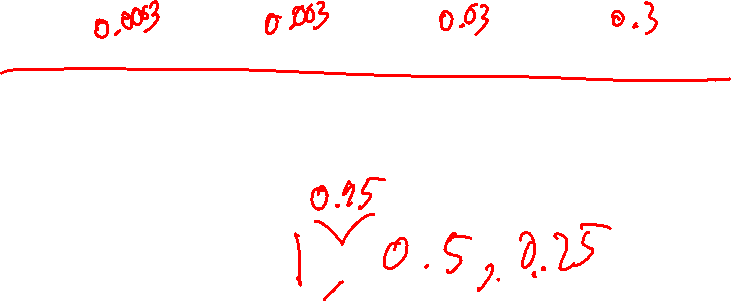 0.003 0.003 0.03 0.3
0.75
1, 0.5, 0.25